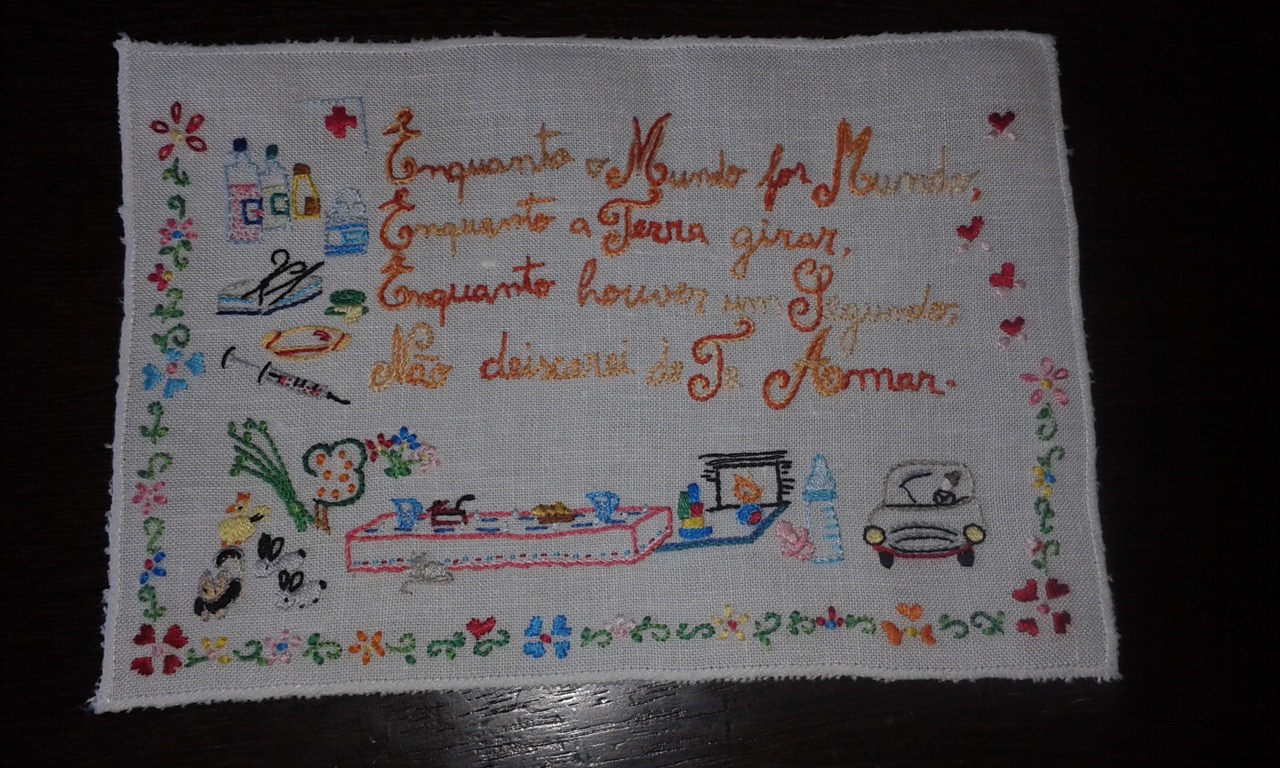 Enquanto o Mundo for Mundo,
Enquanto a Terra girar,
Enquanto houver um Segundo,
Não deixarei de Te Amar.